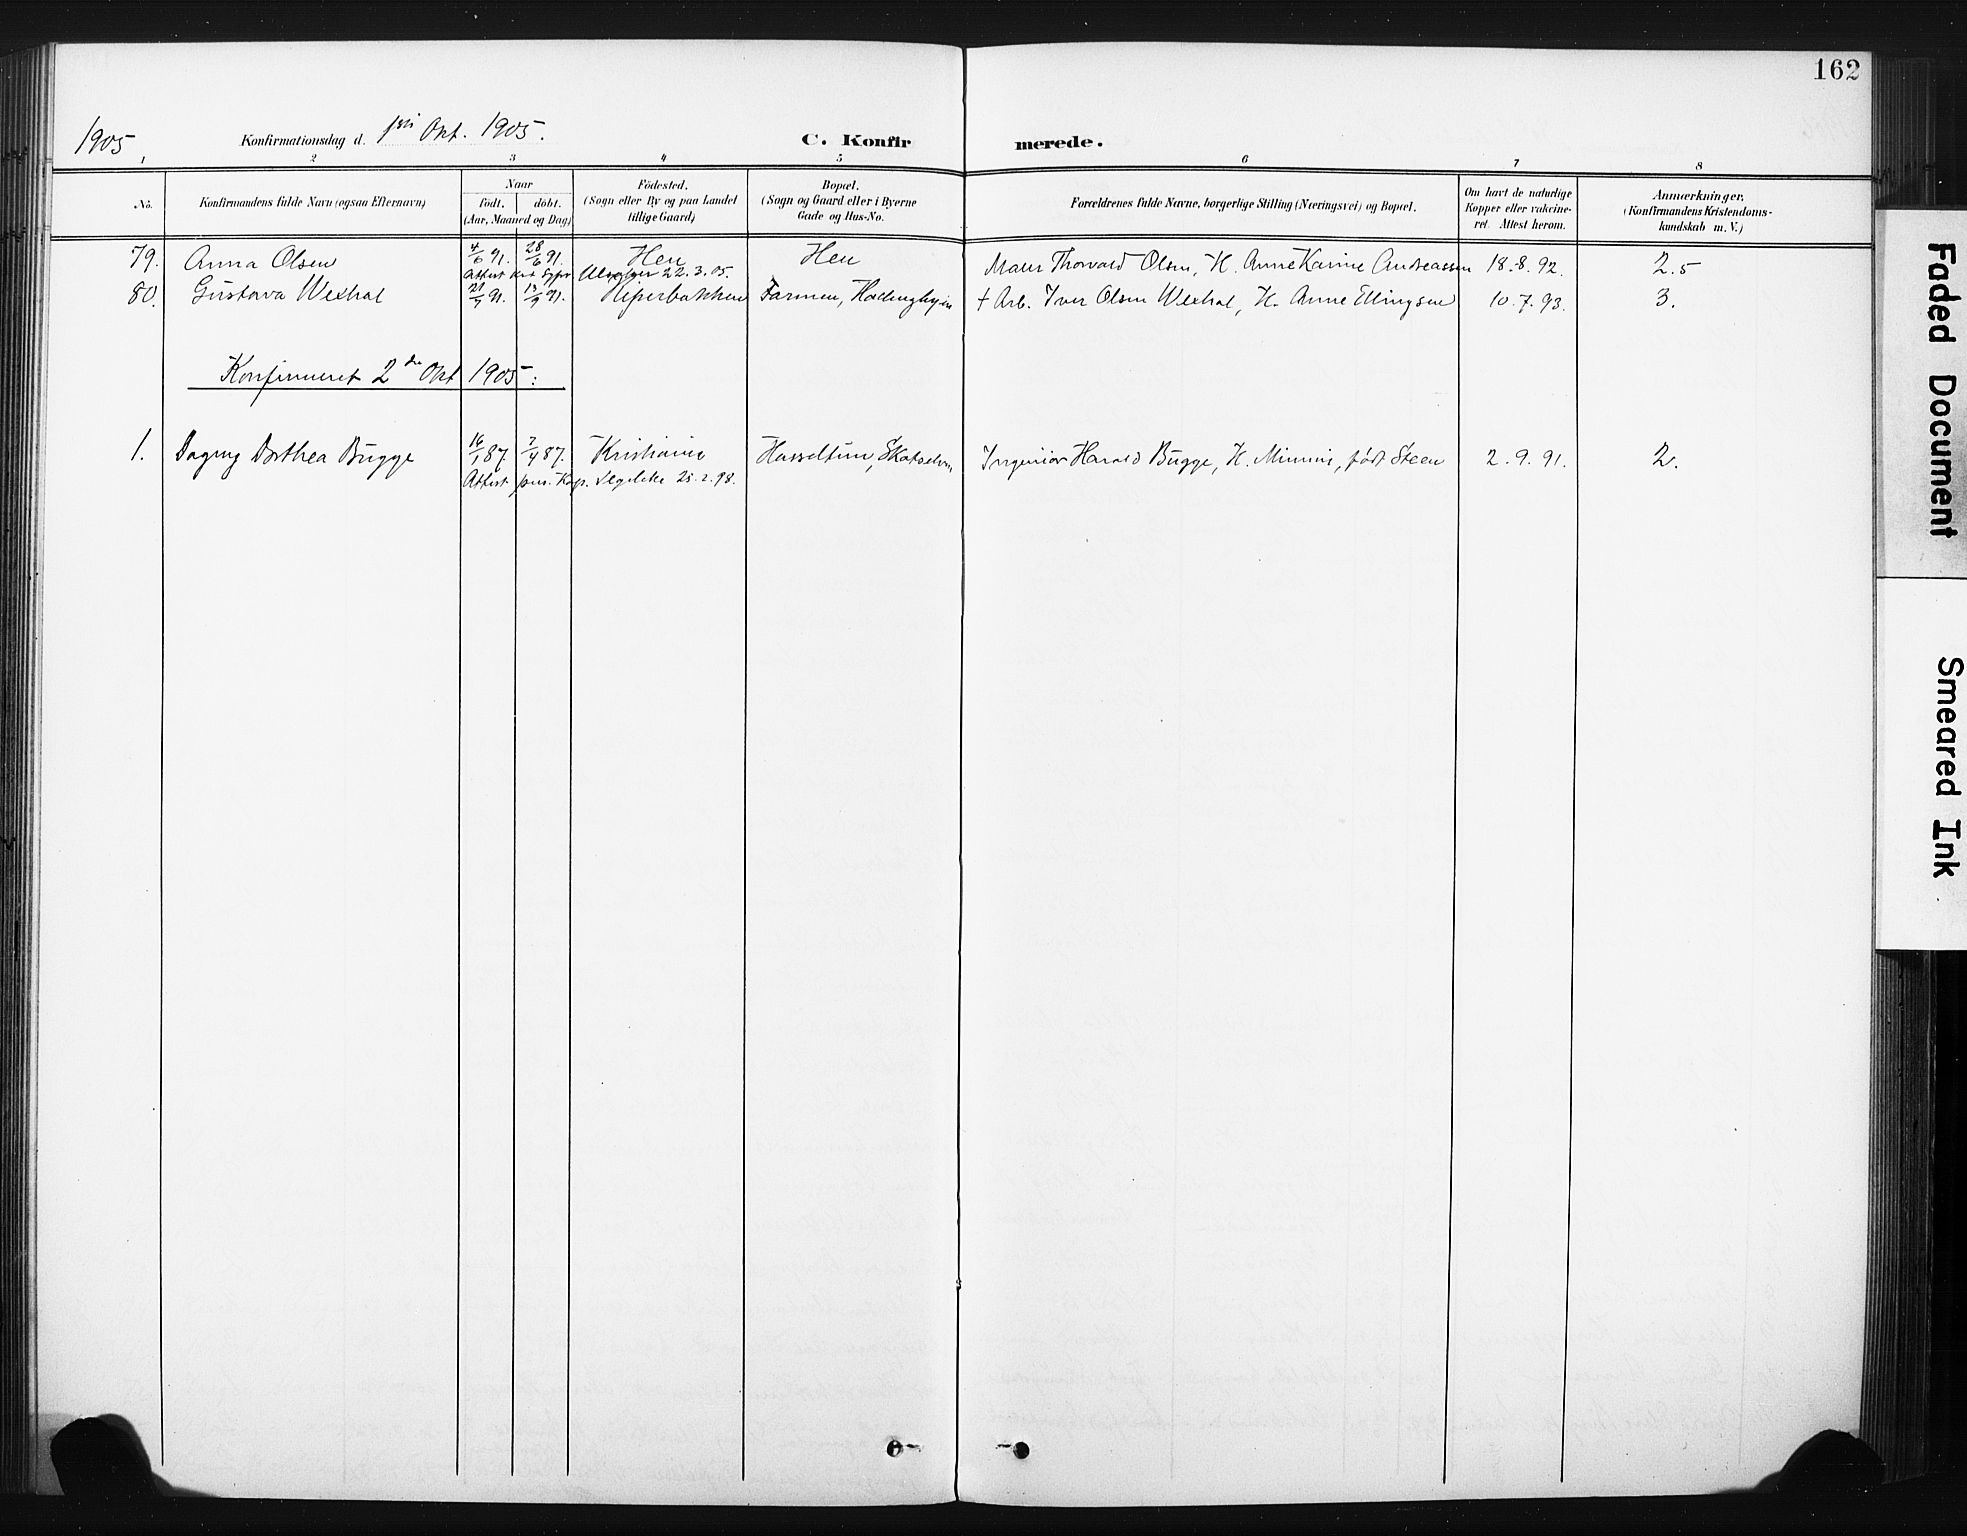 162
1905
Konfirmationsdag d. Okt. 1905.
C. Konfirmerede.
1 2 3 4 5 6 7 8
No.
Konfirmandens fulde Navn (ogsaa Efternavn)
Naar
født. døbt.
(Aar, Maaned og Dag)
Födested.
(Sogn eller By og paa Landet
tillige Gaard)
Bopæl.
(Sogn og Gaard eller i Byerne
Gade og Hus-No.
Forældrenes fulde Navne, borgerlige Stilling (Næringsvei) og Bopæl.
Om havt de naturlige
Kopper eller vakcine-
ret. Attest herom.
Anmærkninger.
(Konfirmandens Kristendoms-
kundskab m. V.)
79. Anna Olsen 4/6 91. 28/6 91. Hen Hen Maler Thorvald Olsen, H. Anne Karine Andreassen 18.8.92. 2.5
Attest 22.3.05.
80. Gustava Wexhal 91. 91. Farmen, + Arb. Iver Olsen Wexhal, H. Anne Ellingsen 10.7.93. 3.
Konfirmeret 2den Okt 1905:
1. Dagny Dorthea Bugge 16/1 87. 7/4 87. Kristiania Hasseltun, Ingeniør Harald Bugge, H. Minnis, født Steen 2.9.91. 2.
Attest pers. Kap.
Faded Document
Smeared Ink